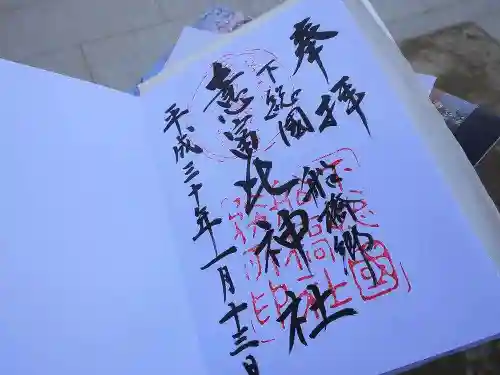 奉拝
船橋郷
下総国
意富比神社
平成三十年一月十三日